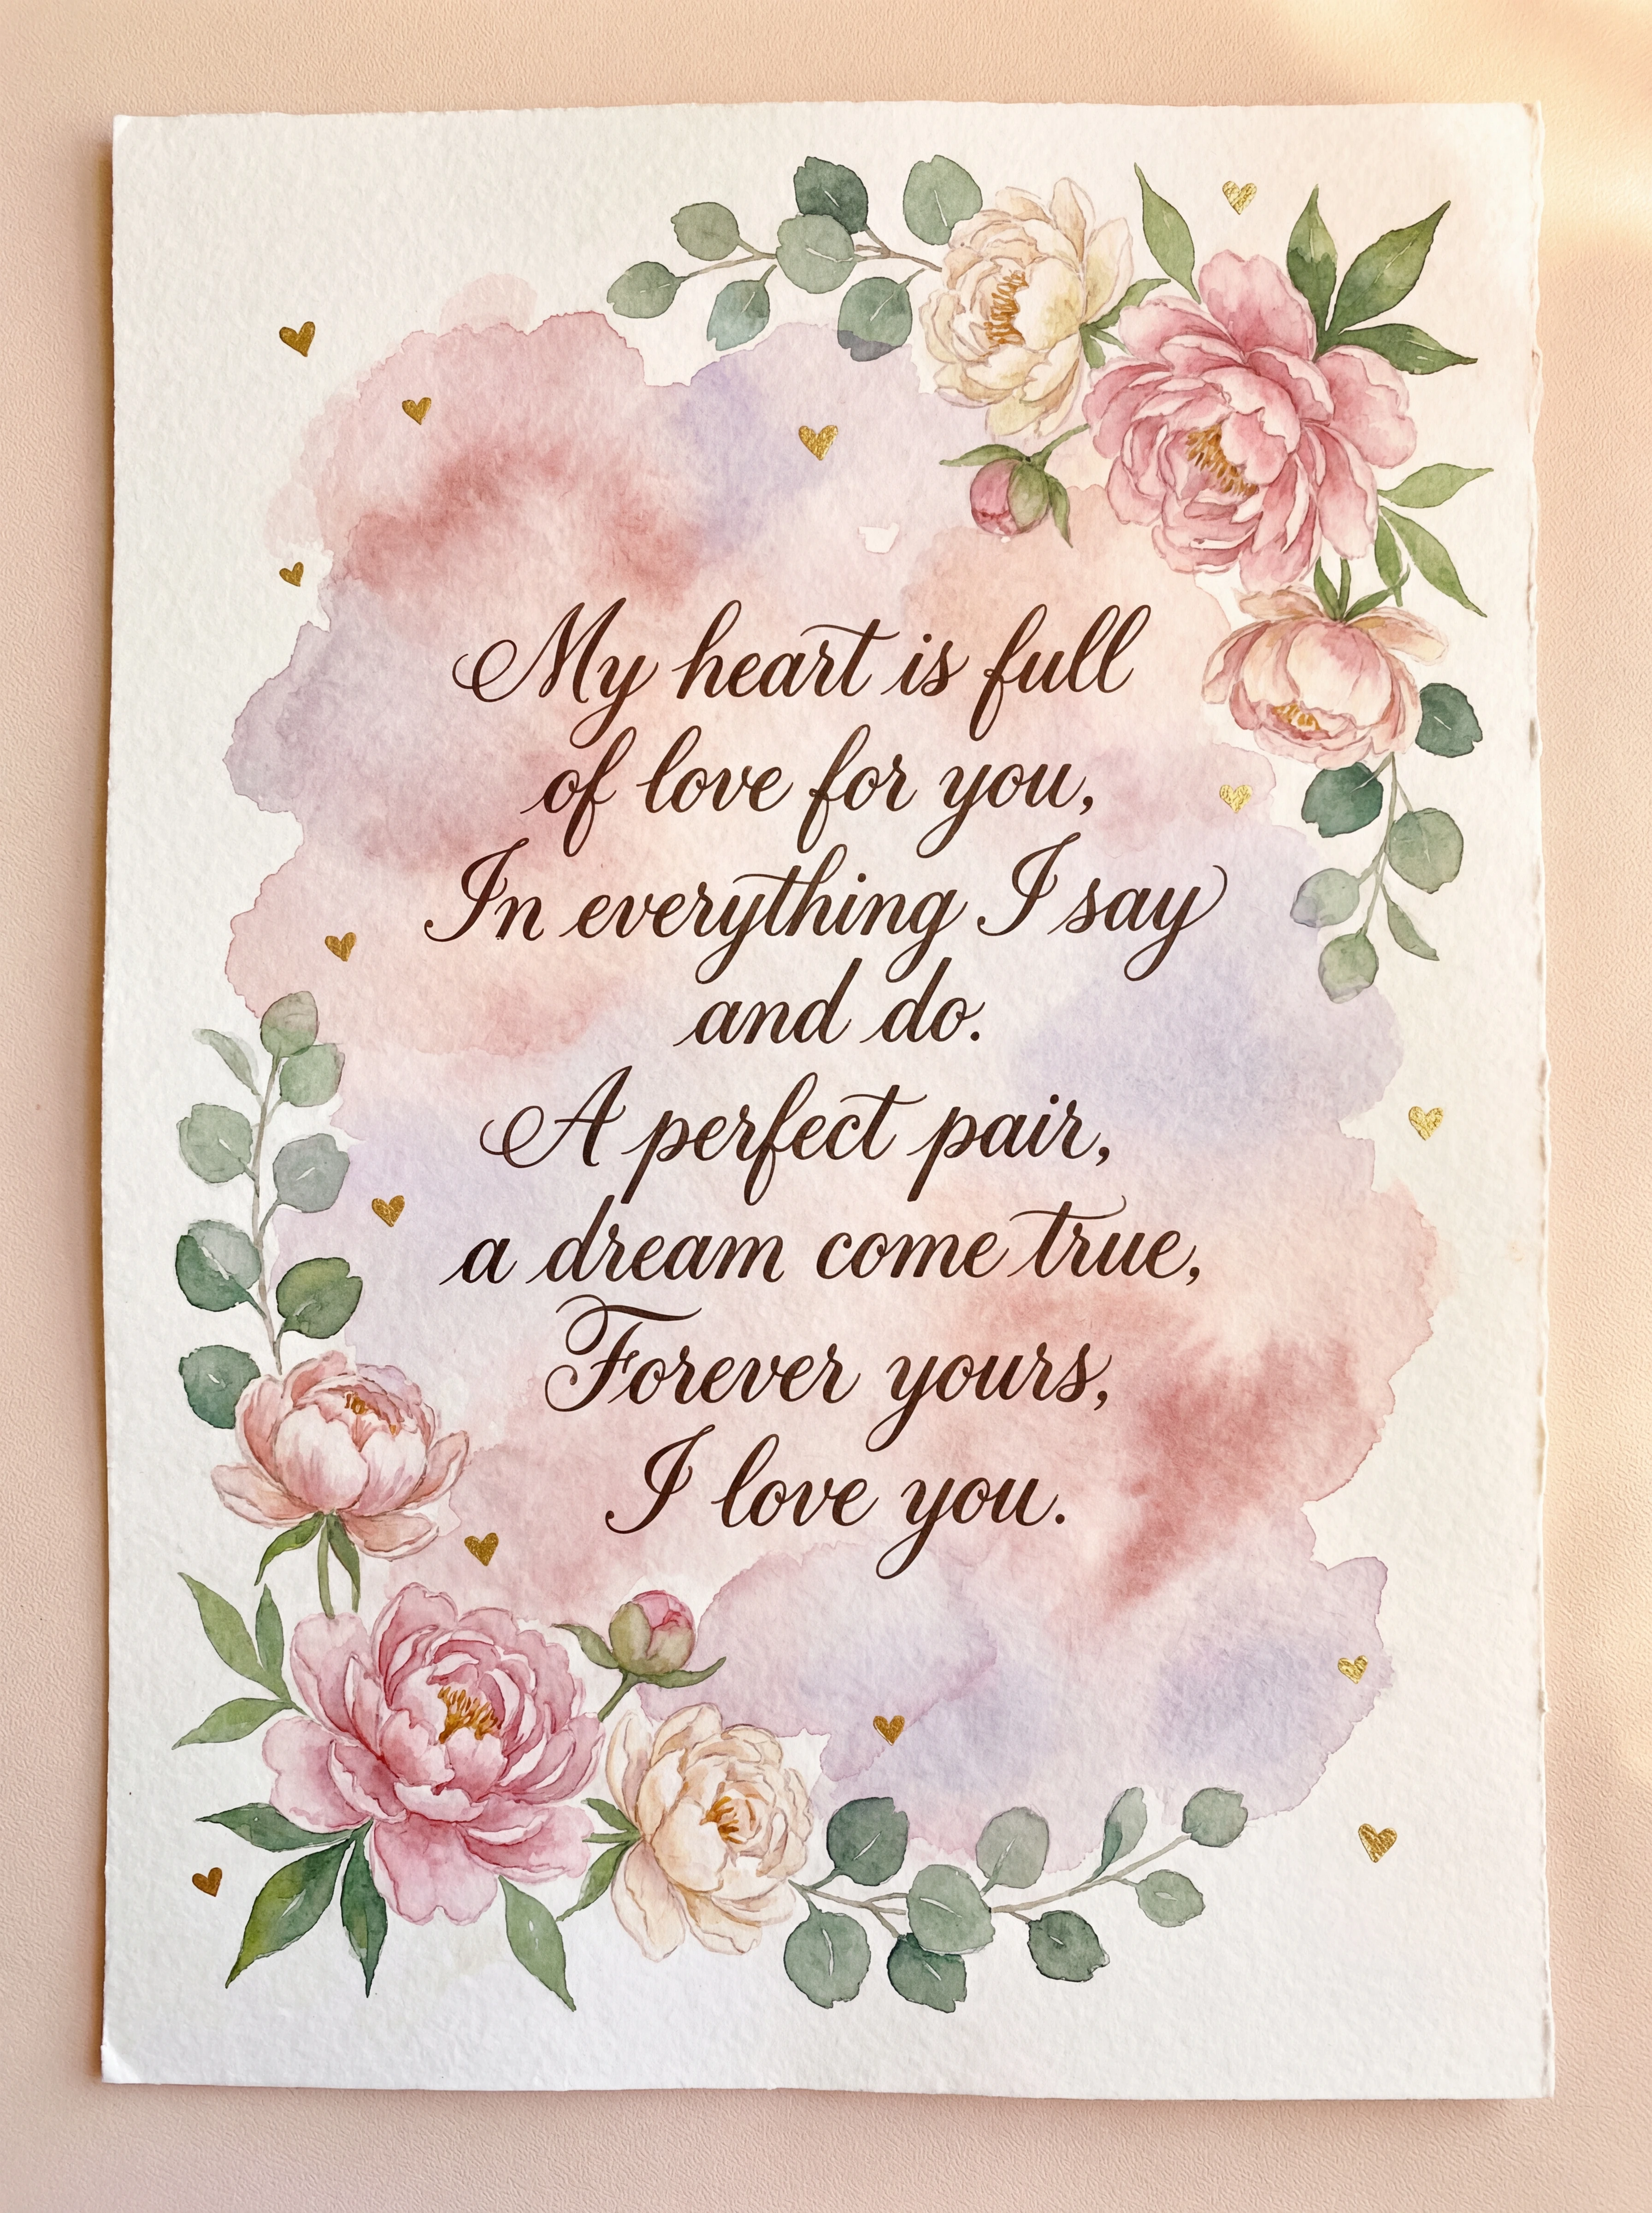 My heart is full
of love for you,
In everything I say
and do.
A perfect pair,
a dream come true,
Forever yours,
I love you.